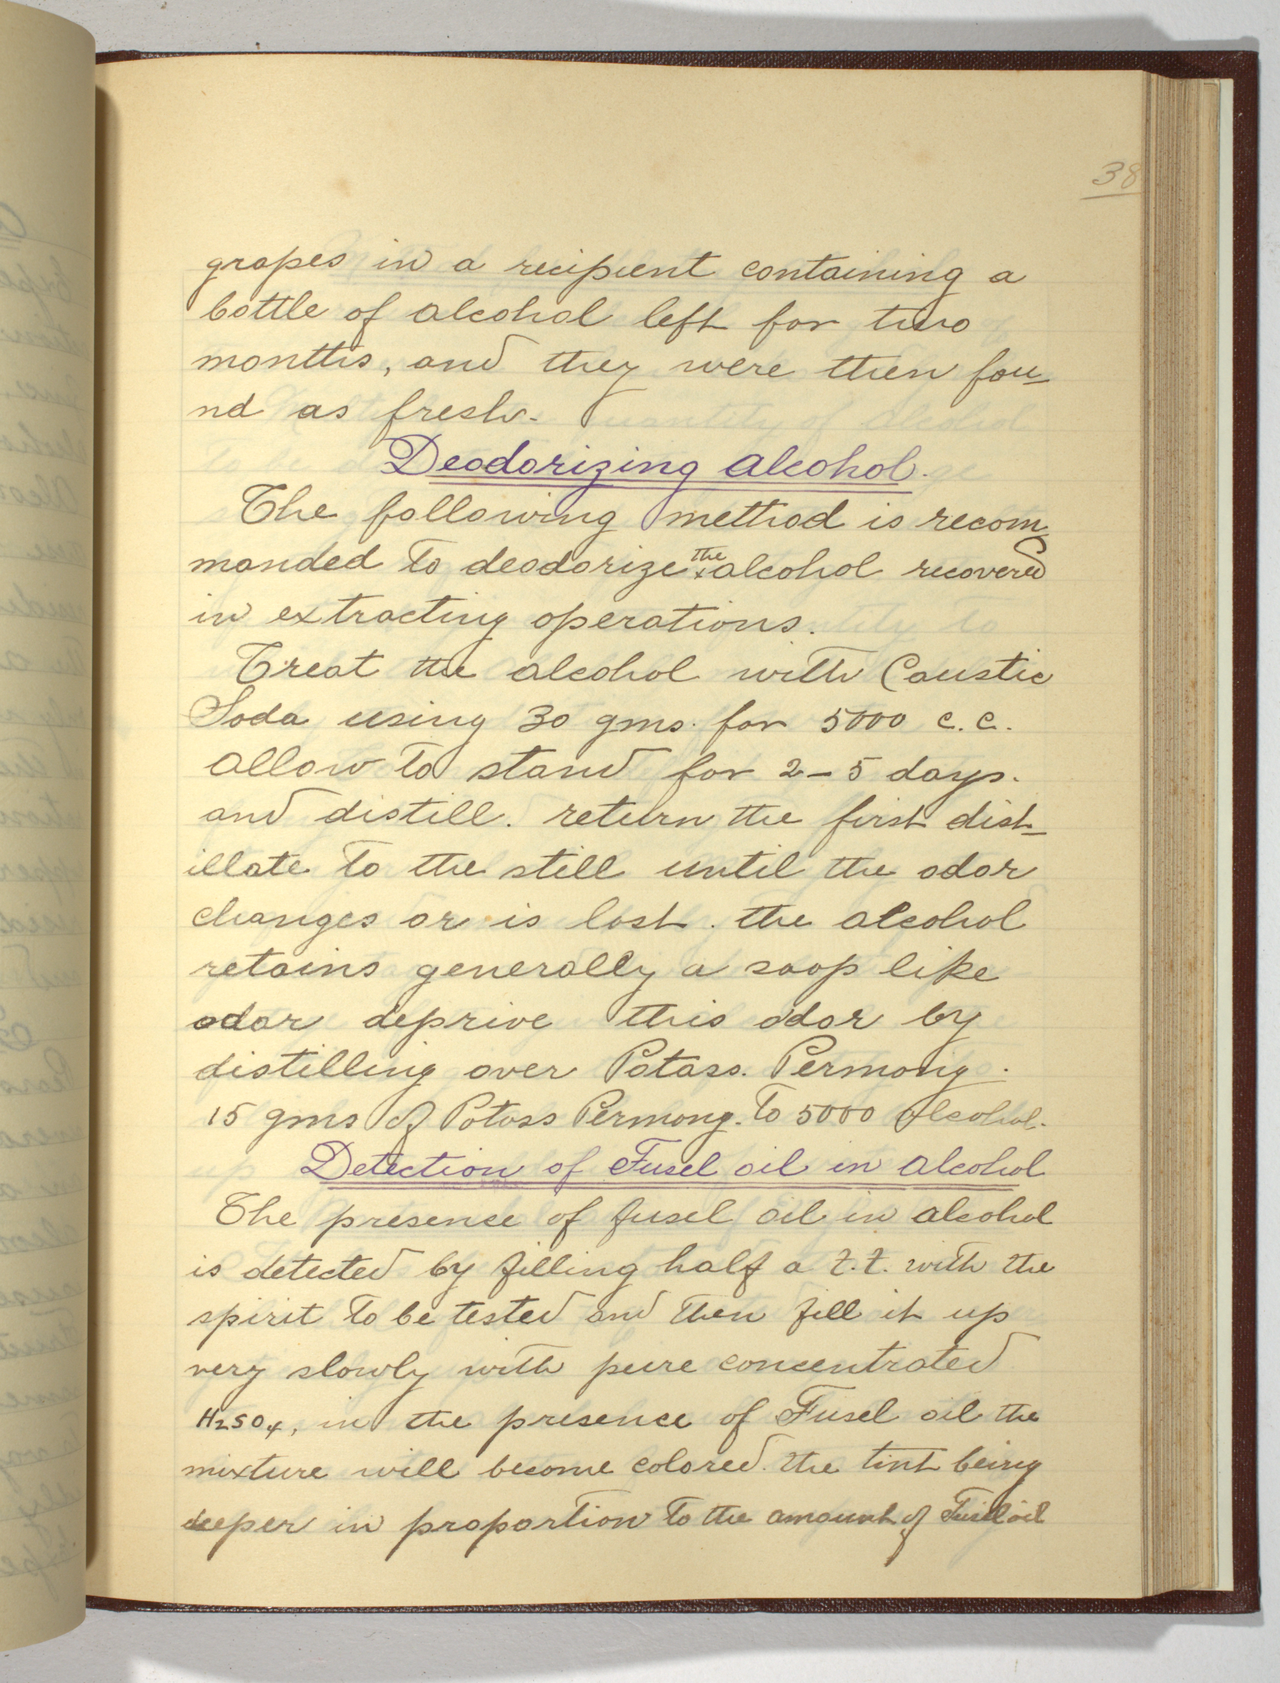 38
grapes in a recipient containing a
bottle of alcohol left for two
months, and they were then fou-
nd as fresh.
Deodorizing alcohol.
The following method is recom-
manded to deodorize the alcohol recovered
in extracting operations.
Treat the alcohol with Caustic
Soda using 30 gms. for 5000 c.c.
Allow to stand for 2-5 days.
and distill. return the first dist-
illate to the still until the odor
changes or is lost. the alcohol
retains generally a soap like
odor deprive this odor by
distilling over Potass. Permang.
15 gms of Potass Permang. to 5000 alcohol.
Detection of Fusel oil in alcohol
The presence of fusel oil in alcohol
is detected by filling half a t.t. with the
spirit to be tested and then fill it up
very slowly with pure concentrated
H2SO4, in the presence of Fusel oil the
mixture will become colored. the tint being
deeper in proportion to the amount of Fusel oil